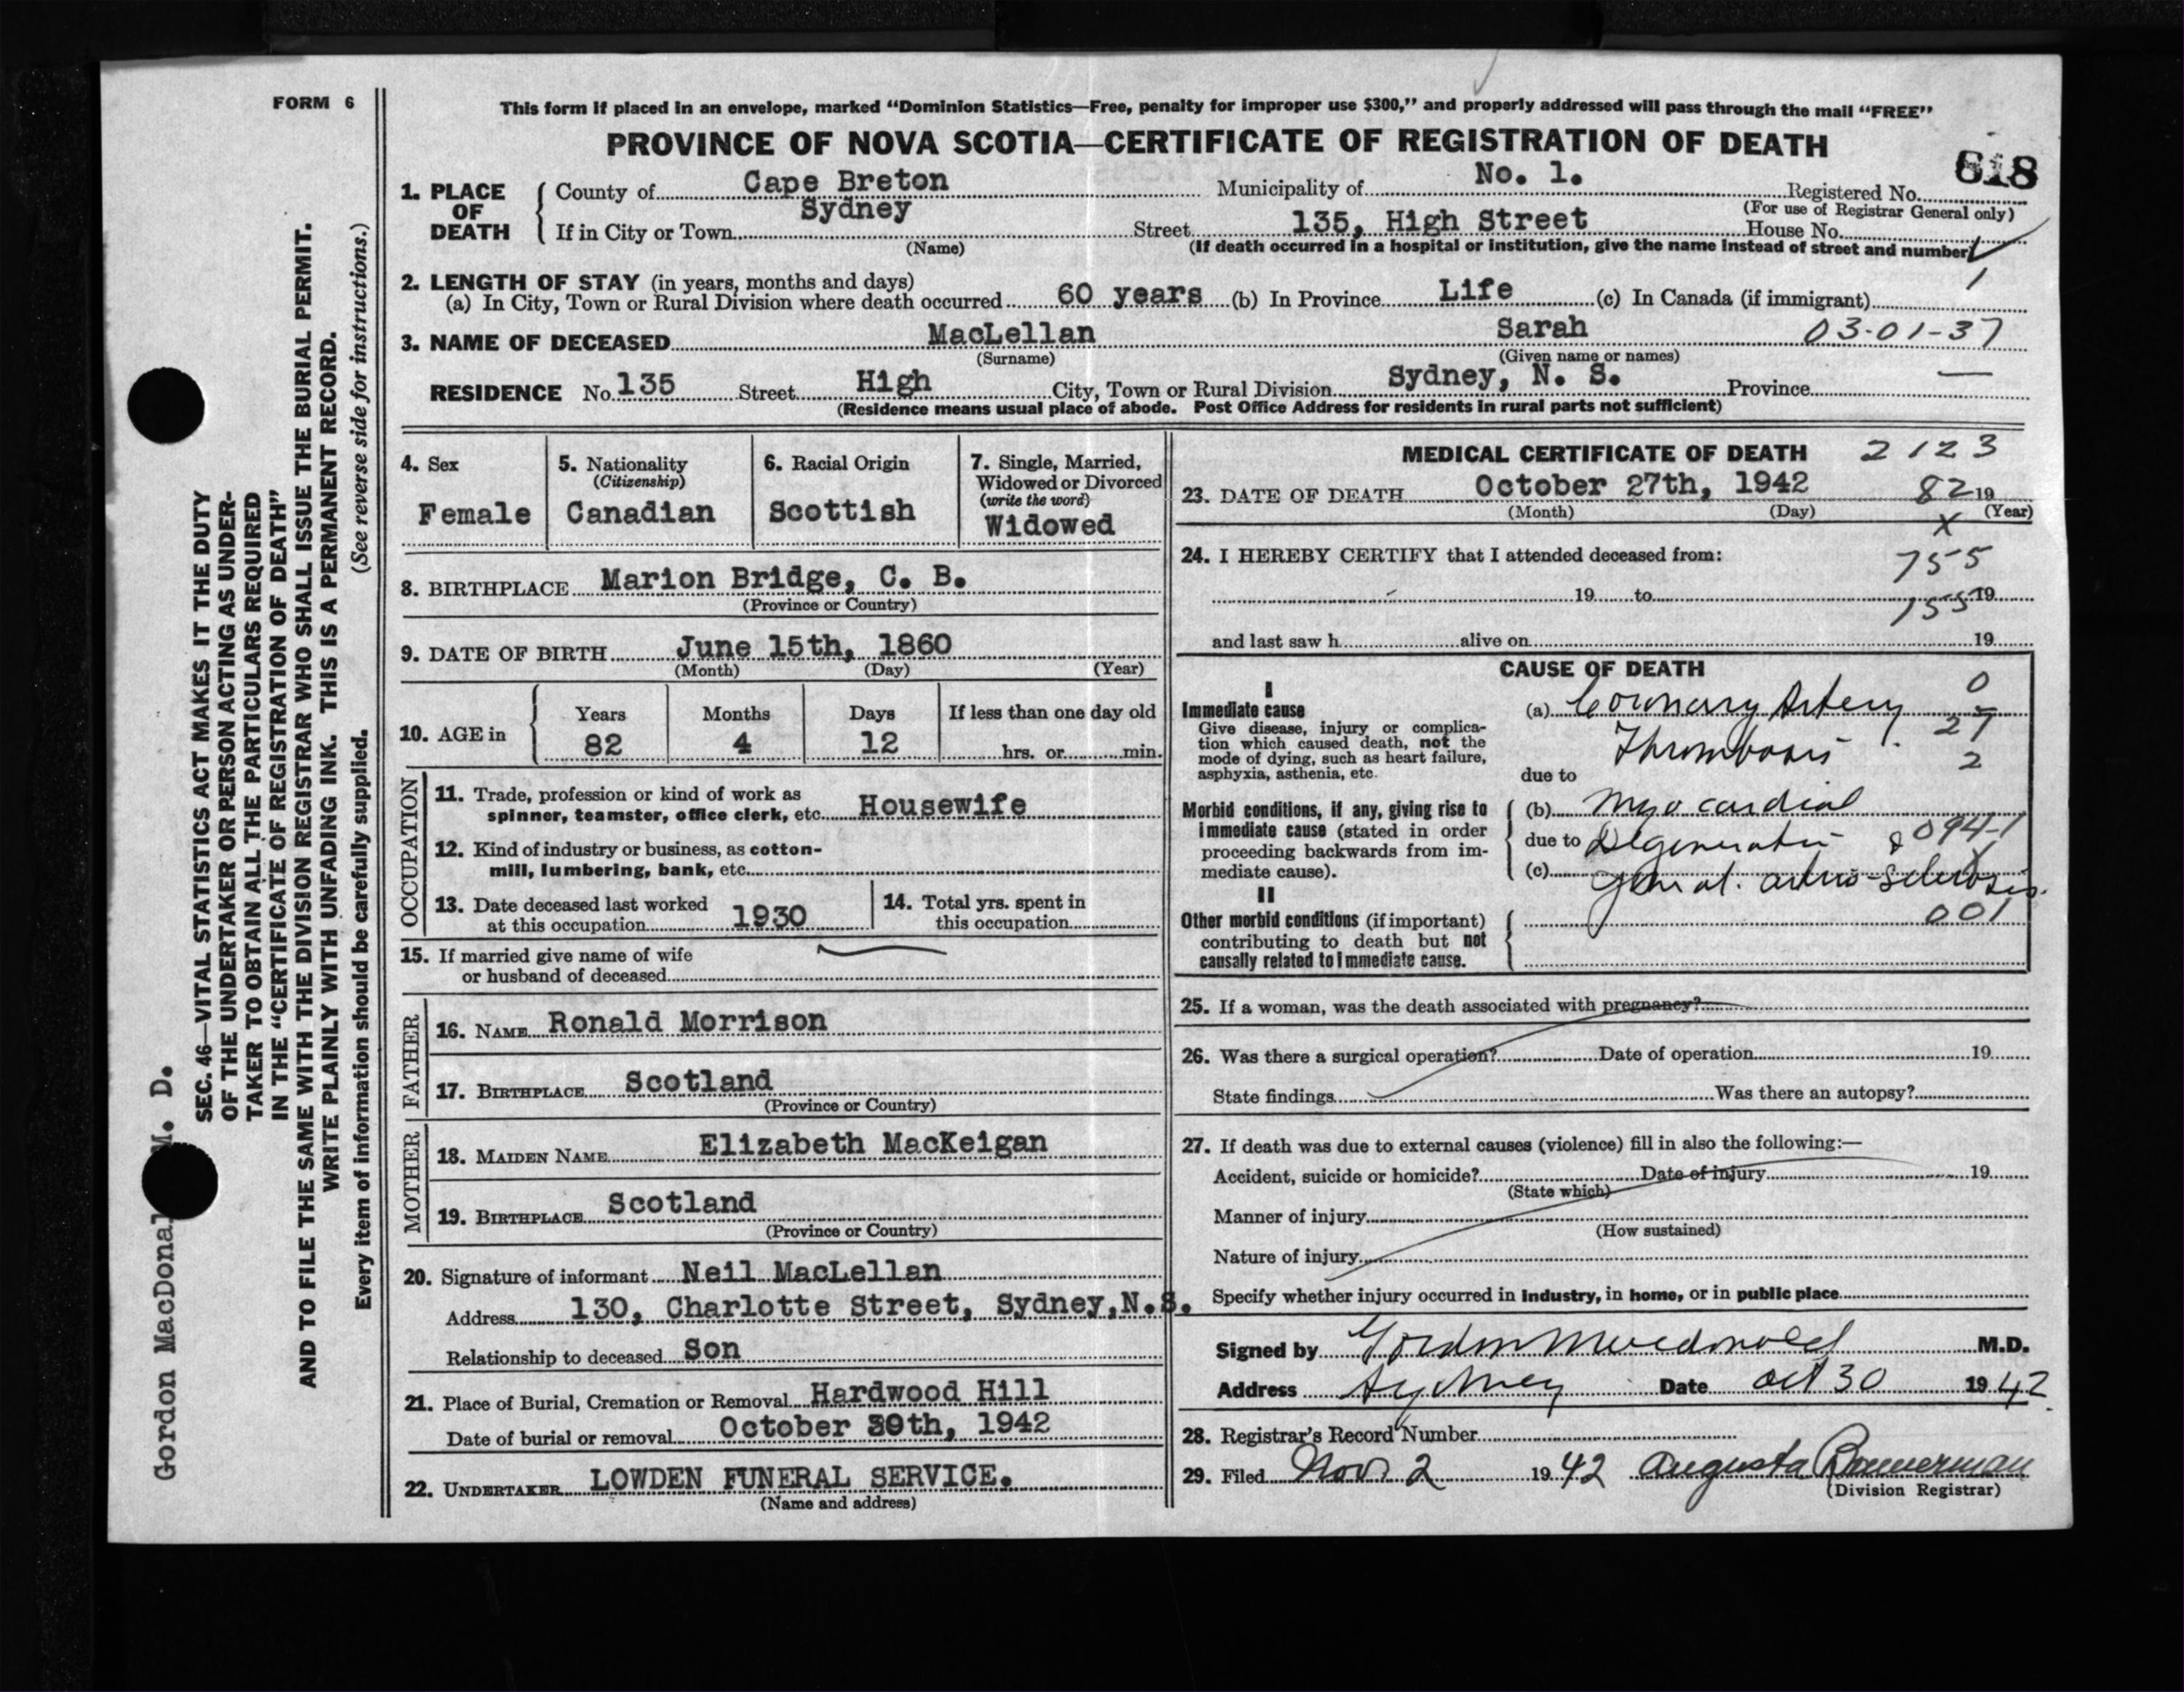 FORM 6
This form if placed in an envelope, marked "Dominion Statistics—Free, penalty for improper use $300," and properly addressed will pass through the mail "FREE"
PROVINCE OF NOVA SCOTIA—CERTIFICATE OF REGISTRATION OF DEATH
818
1. PLACE OF DEATH
County of Cape Breton Municipality of No. 1. Registered No.
(For use of Registrar General only)
If in City or Town Sydney Street 135, High Street House No.
(Name) (If death occurred in a hospital or institution, give the name instead of street and number)
2. LENGTH OF STAY (in years, months and days) 1
(a) In City, Town or Rural Division where death occurred 60 years (b) In Province Life (c) In Canada (if immigrant)
3. NAME OF DECEASED MacLellan Sarah 03-01-37
(Surname) (Given name or names)
RESIDENCE No. 135 Street High City, Town or Rural Division Sydney, N. S. Province —
(Residence means usual place of abode. Post Office Address for residents in rural parts not sufficient)
4. Sex
Female
5. Nationality
(Citizenship)
Canadian
6. Racial Origin
Scottish
7. Single, Married,
Widowed or Divorced
(write the word)
Widowed
8. BIRTHPLACE Marion Bridge, C. B.
(Province or Country)
9. DATE OF BIRTH June 15th, 1860
(Month) (Day) (Year)
10. AGE in
Years Months Days If less than one day old
82 4 12 hrs. or min.
OCCUPATION
11. Trade, profession or kind of work as
spinner, teamster, office clerk, etc. Housewife
12. Kind of industry or business, as cotton-
mill, lumbering, bank, etc.
13. Date deceased last worked
at this occupation 1930
14. Total yrs. spent in
this occupation
15. If married give name of wife
or husband of deceased
FATHER
16. NAME Ronald Morrison
17. BIRTHPLACE Scotland
(Province or Country)
MOTHER
18. MAIDEN NAME Elizabeth MacKeigan
19. BIRTHPLACE Scotland
(Province or Country)
20. Signature of informant Neil MacLellan
Address 130, Charlotte Street, Sydney, N.S.
Relationship to deceased Son
21. Place of Burial, Cremation or Removal Hardwood Hill
Date of burial or removal October 30th, 1942
22. UNDERTAKER LOWDEN FUNERAL SERVICE.
(Name and address)
MEDICAL CERTIFICATE OF DEATH 2123
23. DATE OF DEATH October 27th, 1942 82 19
(Month) (Day) (Year)
X
24. I HEREBY CERTIFY that I attended deceased from: 755
19 to 19
155
and last saw h alive on 19
CAUSE OF DEATH
I
Immediate cause
Give disease, injury or complica-
tion which caused death, not the
mode of dying, such as heart failure,
asphyxia, asthenia, etc.
(a) Coronary Artery
Thrombosis
due to
0
27
2
Morbid conditions, if any, giving rise to
immediate cause (stated in order
proceeding backwards from im-
mediate cause).
(b) Myocardial
due to Degeneration 094-1
(c) General arterio-sclerosis.
II
Other morbid conditions (if important)
contributing to death but not
causally related to immediate cause.
001
25. If a woman, was the death associated with pregnancy?
26. Was there a surgical operation? Date of operation 19
State findings Was there an autopsy?
27. If death was due to external causes (violence) fill in also the following:—
Accident, suicide or homicide? Date of injury 19
(State which)
Manner of injury
(How sustained)
Nature of injury
Specify whether injury occurred in industry, in home, or in public place
Signed by Gordon Macdonald M.D.
Address Sydney Date Oct 30 1942
28. Registrar's Record Number
29. Filed Nov 2 1942 Augusta Bannerman
(Division Registrar)
SEC. 46—VITAL STATISTICS ACT MAKES IT THE DUTY
OF THE UNDERTAKER OR PERSON ACTING AS UNDER-
TAKER TO OBTAIN ALL THE PARTICULARS REQUIRED
IN THE "CERTIFICATE OF REGISTRATION OF DEATH"
AND TO FILE THE SAME WITH THE DIVISION REGISTRAR WHO SHALL ISSUE THE BURIAL PERMIT.
WRITE PLAINLY WITH UNFADING INK. THIS IS A PERMANENT RECORD.
Every item of information should be carefully supplied. (See reverse side for instructions.)
Gordon MacDonal M. D.